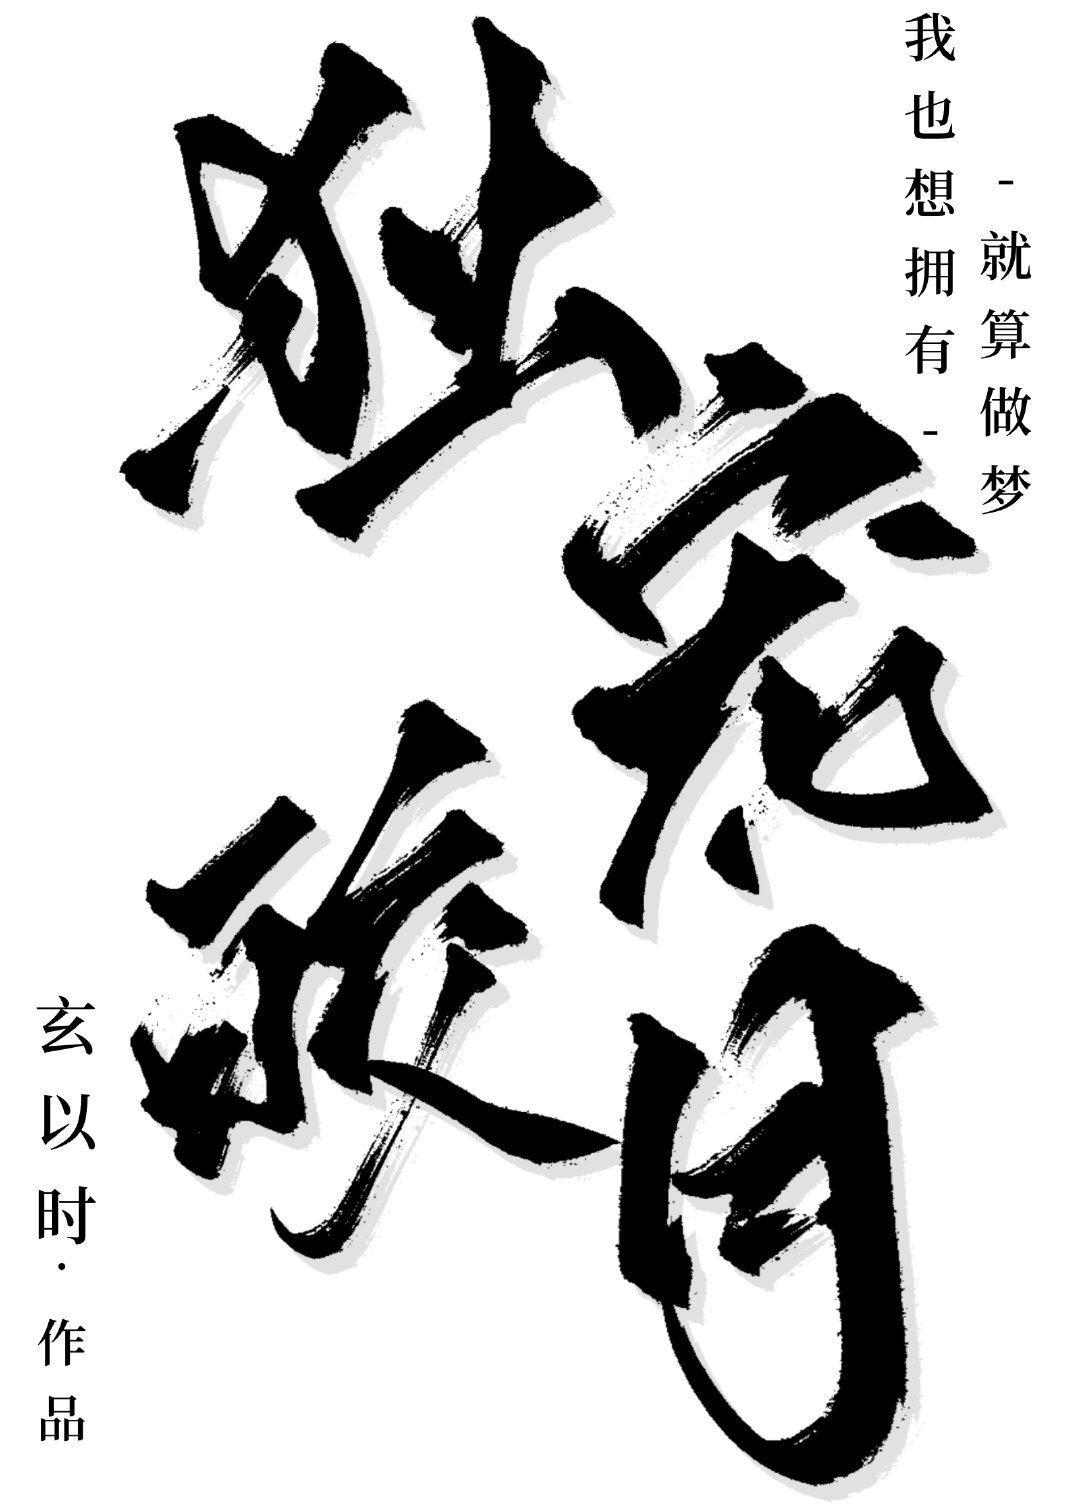 -就算做梦
我也想拥有-
独宠
月
玄以时·作品